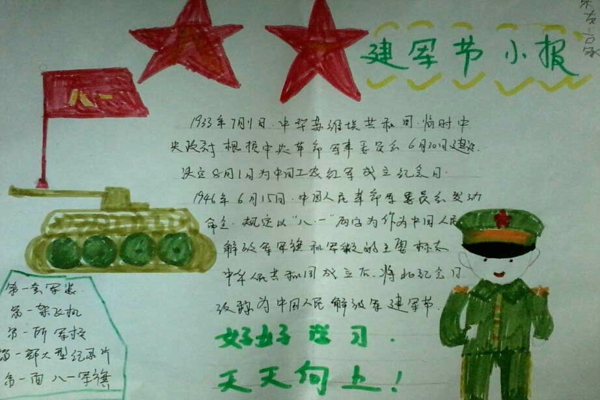 建军节小报
八一
1933年7月1日,中华苏维埃共和国,临时中
央政府根据中央革命军事委员会6月30日建议,
决定8月1日为中国工农红军成立纪念日.
1946年6月15日,中国人民革命军委员会发功
命令,规定以"八一"两字为作为中国人民
解放军军旗和军徽的主要标志
中华人民共和国成立后,将此纪念日
改称为中国人民解放军建军节.
好好学习.
天天向上!
第一套军装
第一架飞机
第一所军校
第一部大型纪录片
第一面八一军旗